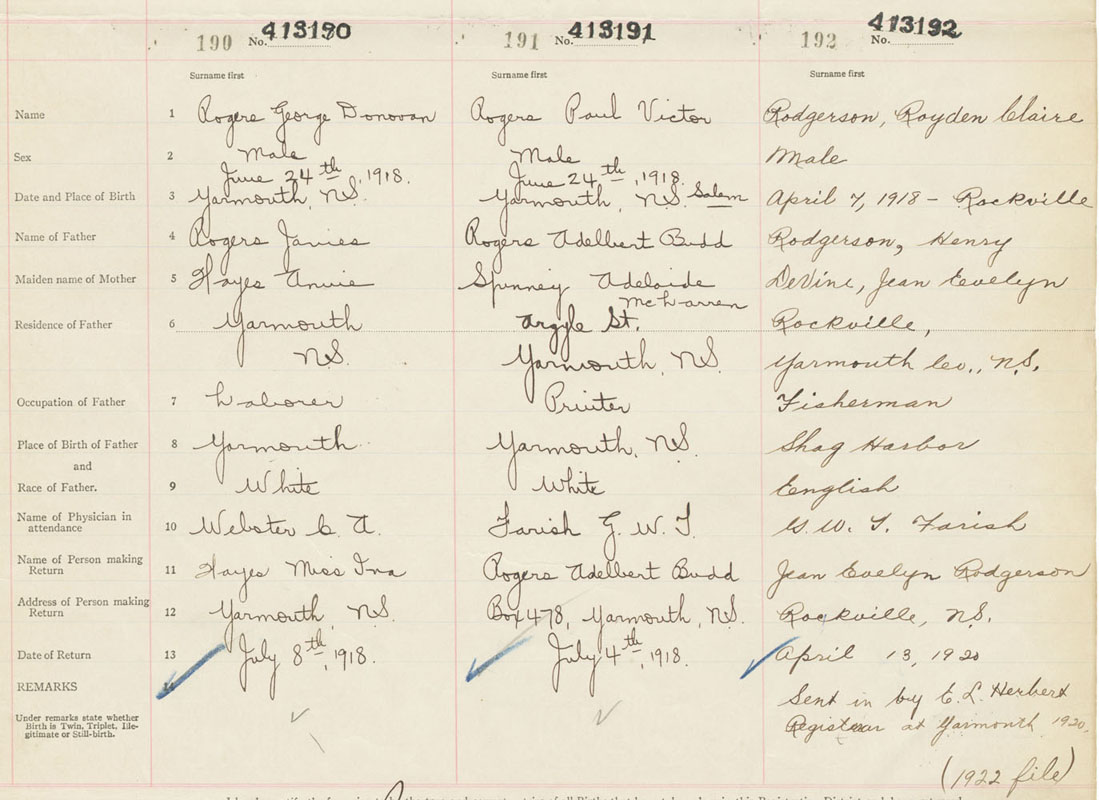 190 No. 413190 191 No. 413191 192 No. 413192
Surname first Surname first Surname first
Name 1 Rogers George Donovan Rogers Paul Victor Rodgerson, Royden Claire
Sex 2 Male Male Male
June 24th, 1918. June 24th, 1918.
Date and Place of Birth 3 Yarmouth, N.S. Yarmouth, N.S. Salem April 7, 1918 - Rockville
Name of Father 4 Rogers James Rogers Adelbert Budd Rodgerson, Henry
Maiden name of Mother 5 Hayes Annie Spinney Adelaide DeVine, Jean Evelyn
McLarren
Residence of Father 6 Yarmouth Argyle St. Rockville,
N.S. Yarmouth, N.S. Yarmouth Co., N.S.
Occupation of Father 7 Laborer Printer Fisherman
Place of Birth of Father 8 Yarmouth Yarmouth, N.S. Shag Harbor
and
Race of Father. 9 White White English
Name of Physician in
attendance 10 Webster C. A. Farish G. W. T. G. W. T. Farish
Name of Person making
Return 11 Hayes Miss Ina Rogers Adelbert Budd Jean Evelyn Rodgerson
Address of Person making
Return 12 Yarmouth, N.S. Box 478, Yarmouth, N.S. Rockville, N.S.
Date of Return 13 July 8th, 1918. July 4th, 1918. April 13, 1920
REMARKS 14 Sent in by E. L. Herbert
Under remarks state whether
Birth is Twin, Triplet, Ille-
gitimate or Still-birth.
Registrar at Yarmouth 1920.
(1922 file)